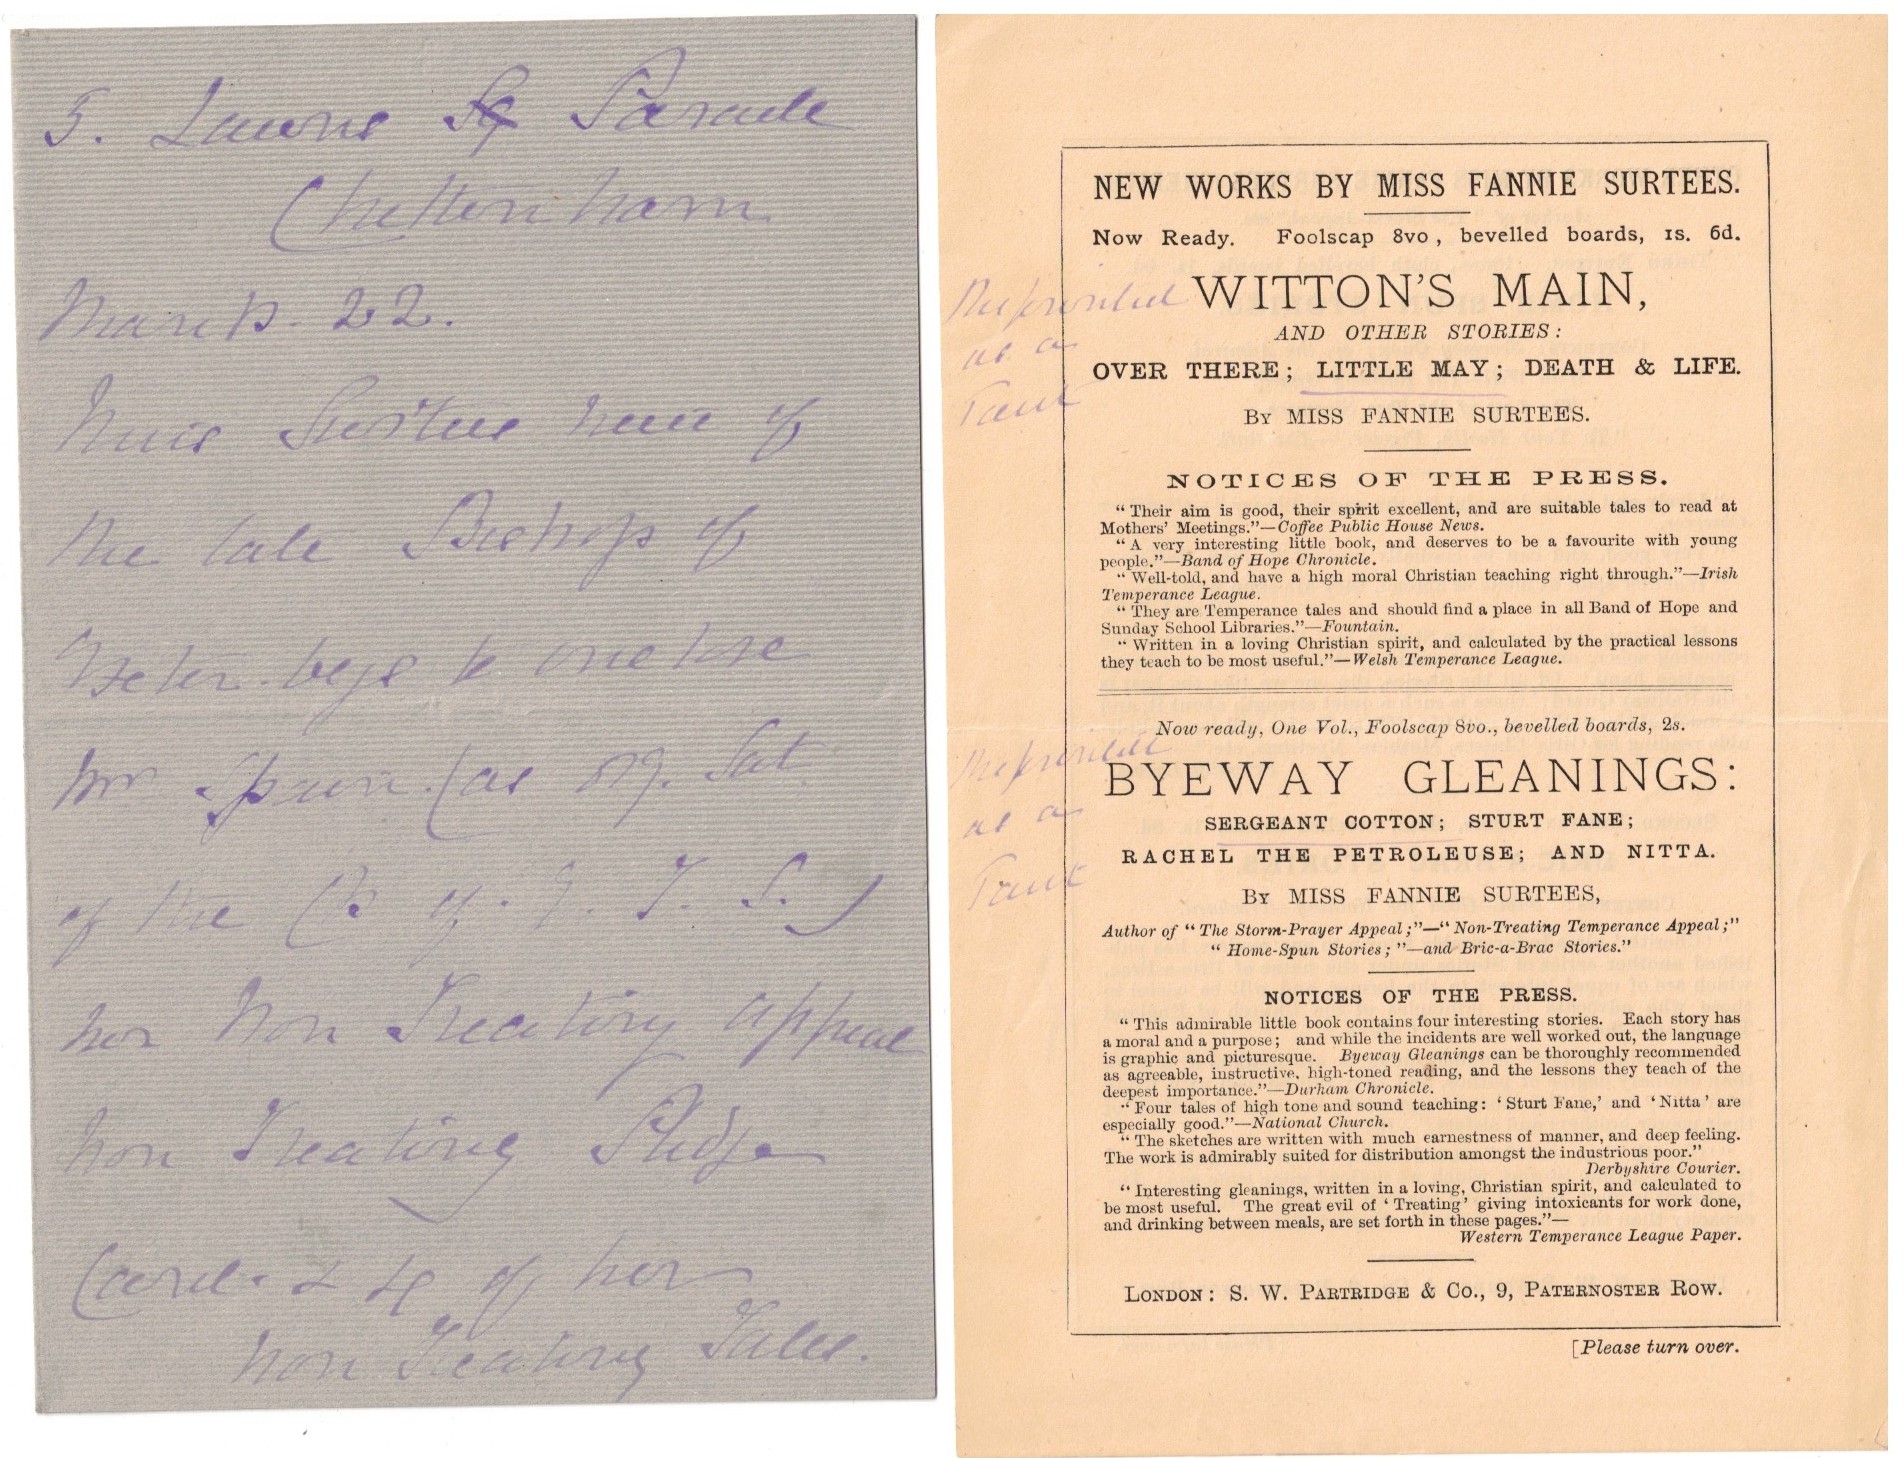 5. Lawns Parade
Cheltenham
March. 22.
Miss Surtees niece of
the late Bishop of
Exeter begs to enclose
Mr (as Sat
of the C. of. T. S.)
her Non Treating appeal
Non Treating Pledge
Card. & 4 of her
Non Treating Tales.
NEW WORKS BY MISS FANNIE SURTEES.
Now Ready. Foolscap 8vo, bevelled boards, 1s. 6d.
Reprinted
as a
Tract
WITTON'S MAIN,
AND OTHER STORIES:
OVER THERE; LITTLE MAY; DEATH & LIFE.
BY MISS FANNIE SURTEES.
NOTICES OF THE PRESS.
"Their aim is good, their spirit excellent, and are suitable tales to read at
Mothers' Meetings."—Coffee Public House News.
"A very interesting little book, and deserves to be a favourite with young
people."—Band of Hope Chronicle.
"Well-told, and have a high moral Christian teaching right through."—Irish
Temperance League.
"They are Temperance tales and should find a place in all Band of Hope and
Sunday School Libraries."—Fountain.
"Written in a loving Christian spirit, and calculated by the practical lessons
they teach to be most useful."—Welsh Temperance League.
Now ready, One Vol., Foolscap 8vo., bevelled boards, 2s.
Reprinted
as a
Tract
BYEWAY GLEANINGS:
SERGEANT COTTON; STURT FANE;
RACHEL THE PETROLEUSE; AND NITTA.
BY MISS FANNIE SURTEES,
Author of "The Storm-Prayer Appeal;"—"Non-Treating Temperance Appeal;"
"Home-Spun Stories;"—and Bric-a-Brac Stories."
NOTICES OF THE PRESS.
"This admirable little book contains four interesting stories. Each story has
a moral and a purpose; and while the incidents are well worked out, the language
is graphic and picturesque. Byeway Gleanings can be thoroughly recommended
as agreeable, instructive, high-toned reading, and the lessons they teach of the
deepest importance."—Durham Chronicle.
"Four tales of high tone and sound teaching: 'Sturt Fane,' and 'Nitta' are
especially good."—National Church.
"The sketches are written with much earnestness of manner, and deep feeling.
The work is admirably suited for distribution amongst the industrious poor."
Derbyshire Courier.
"Interesting gleanings, written in a loving, Christian spirit, and calculated to
be most useful. The great evil of 'Treating' giving intoxicants for work done,
and drinking between meals, are set forth in these pages."—
Western Temperance League Paper.
LONDON: S. W. PARTRIDGE & CO., 9, PATERNOSTER ROW.
[Please turn over.